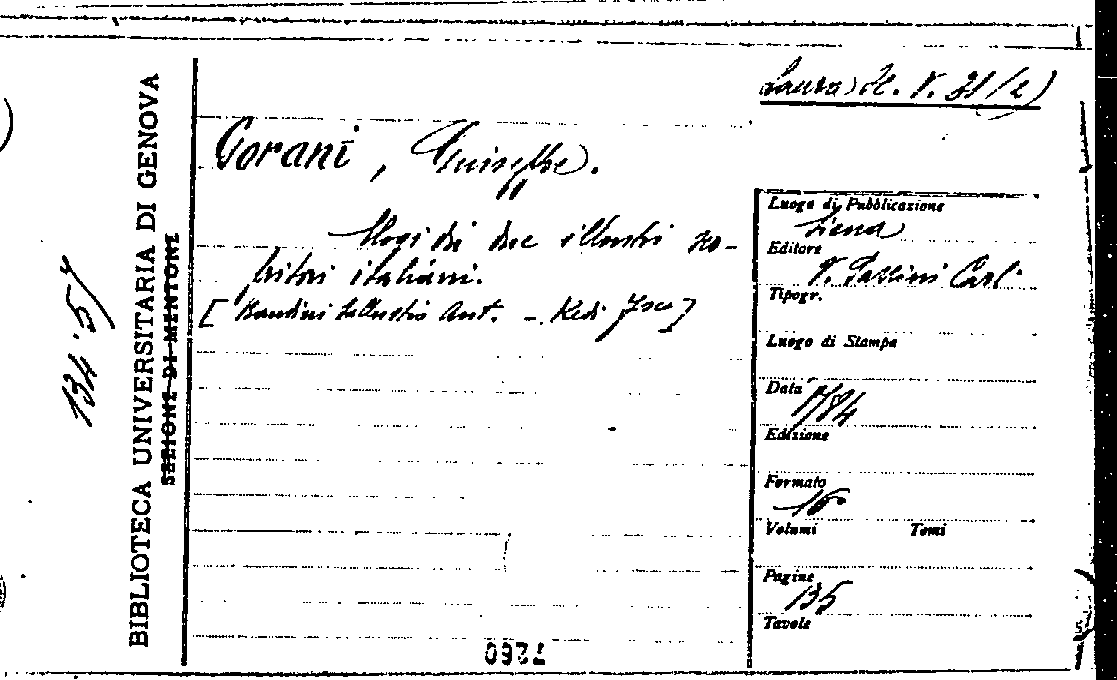 BIBLIOTECA UNIVERSITARIA DI GENOVA
SEZIONE DI MINTONE
134'57
Laura) H. V. 31 (2)
Gorani, Guiseppe.
Elogi di due illustri sco-
pritori italiani.
[Bandini Sallustio Ant. - Redi Fsco]
Luogo di Pubblicazione
Siena
Editore
V. Pazzini Carli
Tipogr.
Luogo di Stampa
Data
1784
Edizione
Formato
16°
Volumi Tomi
Pagine
135
Tavole
7260